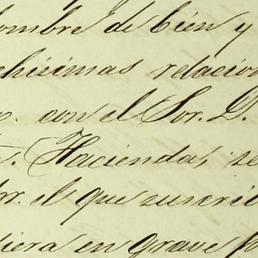 ombre de bien y
chísimas relacion
con el Sor. D.
Haciendas, se
or. el que suscrib
diera en grave p